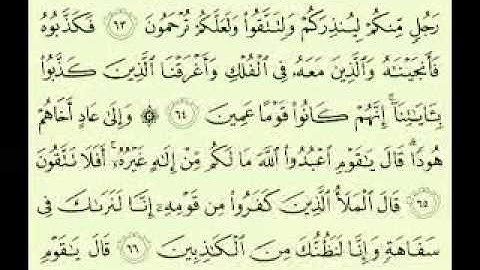 رَجُلٍ مِّنكُمْ لِيُنذِرَكُمْ وَلِتَتَّقُوا۟ وَلَعَلَّكُمْ تُرْحَمُونَ ٦٣ فَكَذَّبُوهُ
فَأَنجَيْنَٰهُ وَٱلَّذِينَ مَعَهُۥ فِى ٱلْفُلْكِ وَأَغْرَقْنَا ٱلَّذِينَ كَذَّبُوا۟
بِـَٔايَٰتِنَآ ۚ إِنَّهُمْ كَانُوا۟ قَوْمًا عَمِينَ ٦٤ ۞ وَإِلَىٰ عَادٍ أَخَاهُمْ
هُودًا ۗ قَالَ يَٰقَوْمِ ٱعْبُدُوا۟ ٱللَّهَ مَا لَكُم مِّنْ إِلَٰهٍ غَيْرُهُۥٓ ۚ أَفَلَا تَتَّقُونَ
٦٥ قَالَ ٱلْمَلَأُ ٱلَّذِينَ كَفَرُوا۟ مِن قَوْمِهِۦٓ إِنَّا لَنَرَىٰكَ فِى
سَفَاهَةٍ وَإِنَّا لَنَظُنُّكَ مِنَ ٱلْكَٰذِبِينَ ٦٦ قَالَ يَٰقَوْمِ